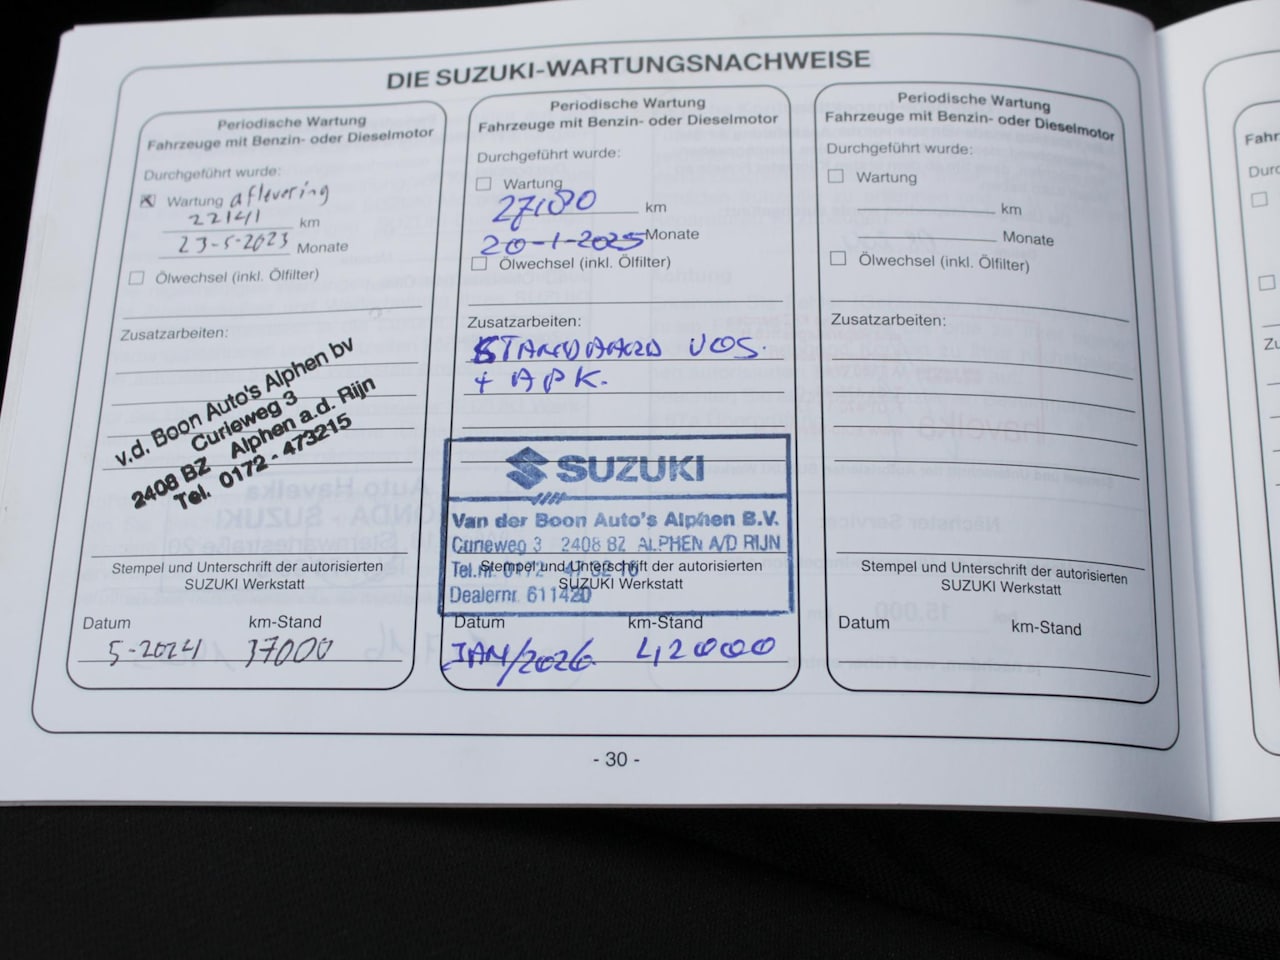 DIE SUZUKI-WARTUNGSNACHWEISE
Periodische Wartung
Fahrzeuge mit Benzin- oder Dieselmotor
Durchgeführt wurde:
Wartung aflevering
22141 km
23-5-2023 Monate
Ölwechsel (inkl. Ölfilter)
Zusatzarbeiten:
v.d. Boon Auto's Alphen bv
Curieweg 3
2408 BZ Alphen a.d. Rijn
Tel. 0172 - 473215
Stempel und Unterschrift der autorisierten
SUZUKI Werkstatt
Datum km-Stand
5-2024 37000
Periodische Wartung
Fahrzeuge mit Benzin- oder Dieselmotor
Durchgeführt wurde:
Wartung
27180 km
20-1-2025 Monate
Ölwechsel (inkl. Ölfilter)
Zusatzarbeiten:
STANDAARD
+ APK.
SUZUKI
Van der Boon Auto's Alphen B.V.
Curieweg 3 2408 BZ ALPHEN A/D RIJN
Tel.nr. 0172
Stempel und Unterschrift der autorisierten
SUZUKI Werkstatt
Dealernr 611420
Datum km-Stand
JAN/2026. 420000
Periodische Wartung
Fahrzeuge mit Benzin- oder Dieselmotor
Durchgeführt wurde:
Wartung
km
Monate
Ölwechsel (inkl. Ölfilter)
Zusatzarbeiten:
Stempel und Unterschrift der autorisierten
SUZUKI Werkstatt
Datum km-Stand
- 30 -